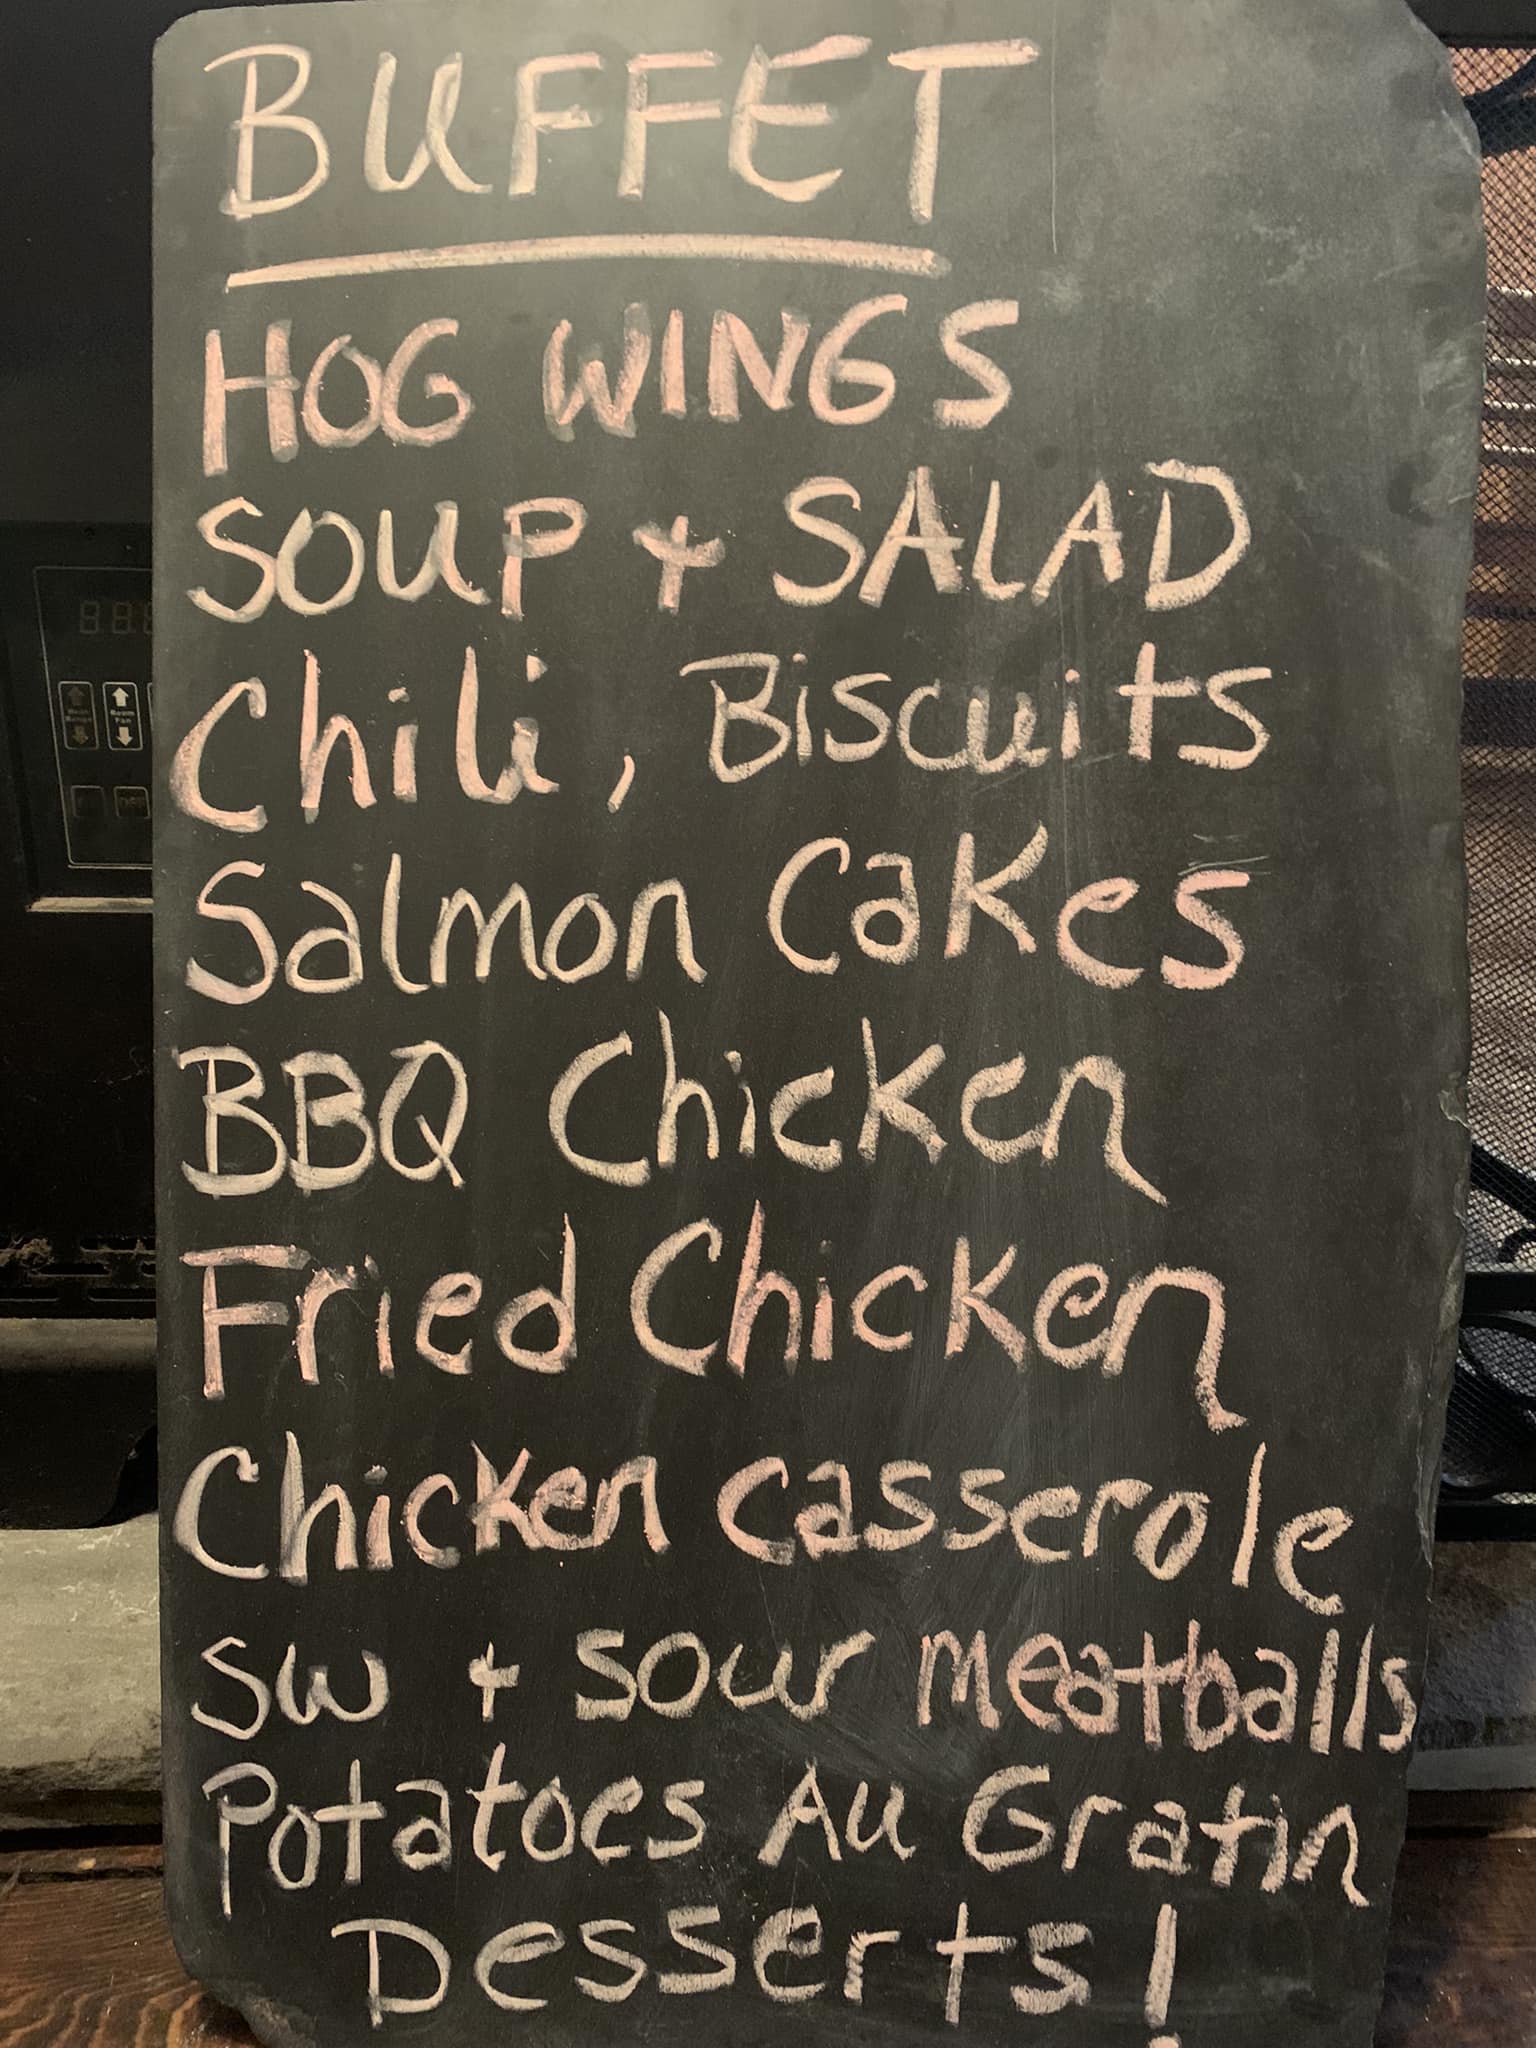 BUFFET
HOG WINGS
SOUP + SALAD
Chili, Biscuits
Salmon Cakes
BBQ Chicken
Fried Chicken
Chicken Casserole
SW + SOUR Meatballs
Potatoes Au Gratin
Desserts!
888
Room
Fan